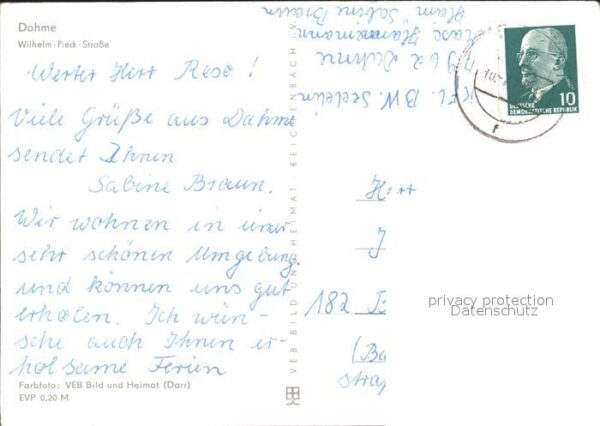 Dahme
Wilhelm-Pieck-Straße
Werter Herr Reso!
Viele Grüße aus Dahme
sendet Ihnen
Sabine Braun.
Wir wohnen in einer
sehr schönen Umgebung
und können uns gut
erholen. Ich wün-
sche auch Ihnen er-
holsame Ferien
Farbfoto: VEB Bild und Heimat (Darr)
EVP 0,20 M
VEB BILD UND HEIMAT REICHENBACH
Sabine Braun
Heim
7962 Dahme
B.W.
DEUTSCHE
DEMOKRATISCHE REPUBLIK
10
Herr
J
182 B
(Ba
straß
privacy protection
Datenschutz